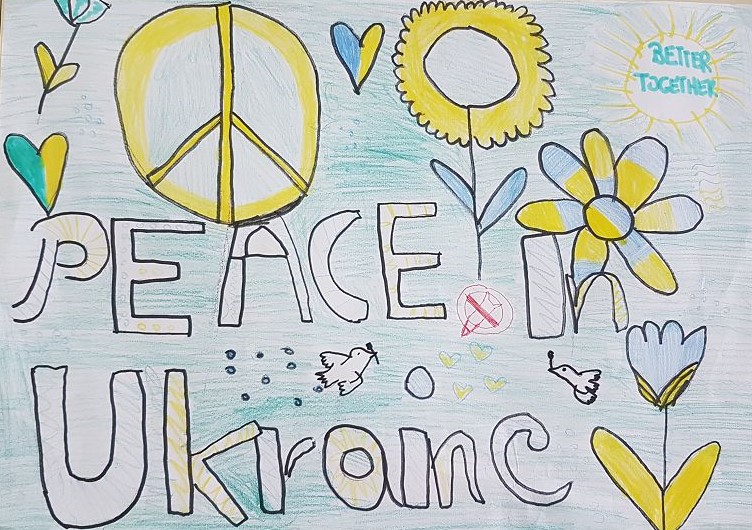 BETTER
TOGETHER
PEACE In
Ukraine